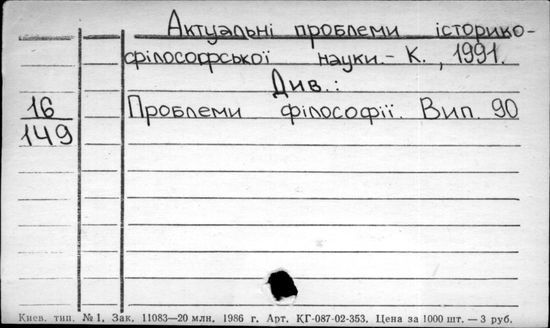 Актуальні проблеми історико-
філософської науки.- К., 1991.
Див.:
16
149
Проблеми філософії. Вип. 90
Киев. тип. № 1, Зак. 11083—20 млн. 1986 г. Арт. КГ-087-02-353. Цена за 1000 шт. — 3 руб.